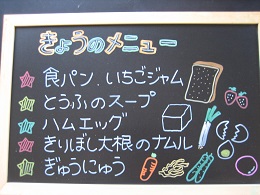 きょうのメニュー
食パン、いちごジャム
とうふのスープ
ハムエッグ
きりぼし大根のナムル
ぎゅうにゅう